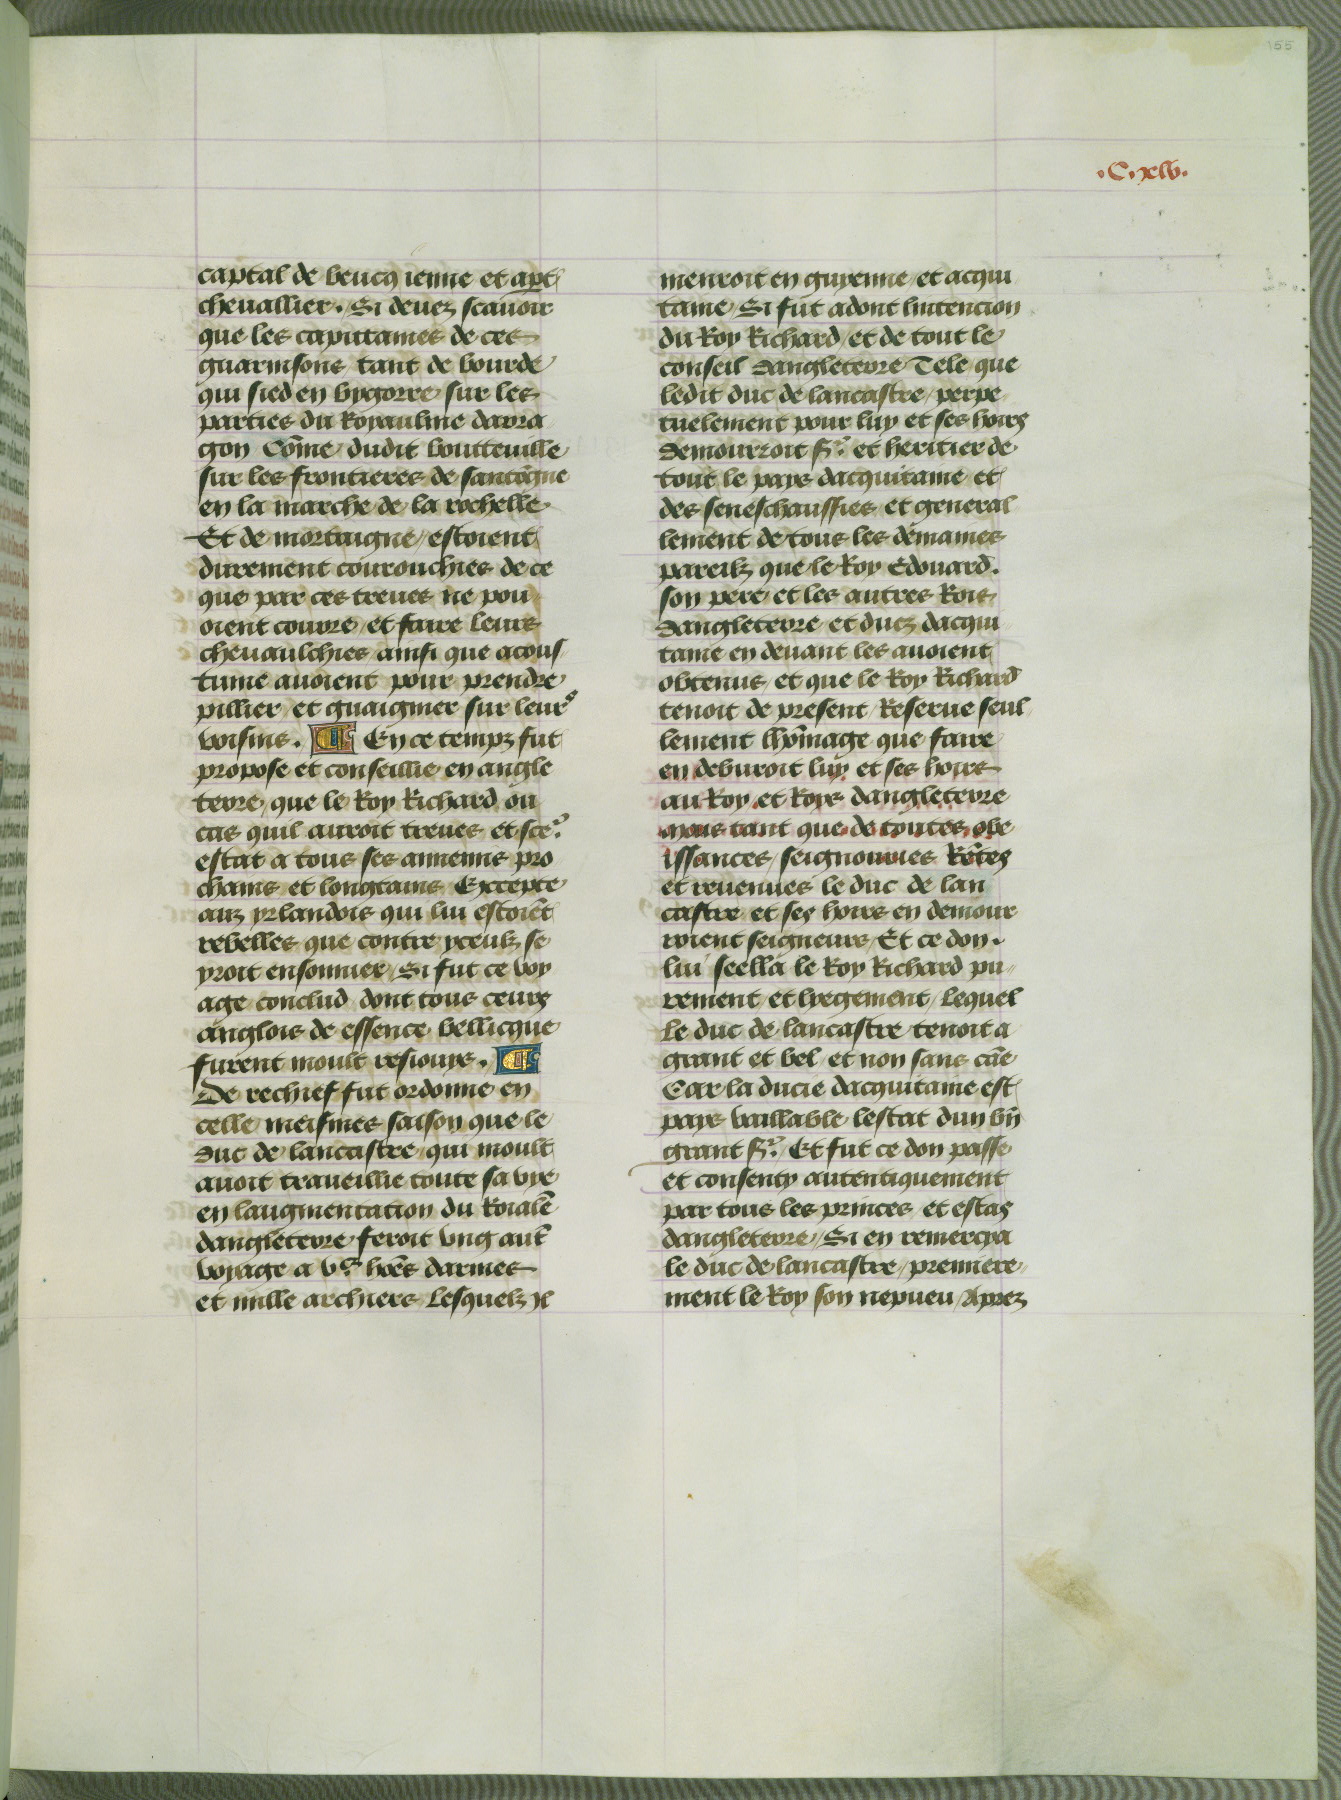 155
.C.xlv.
captal de beucq ienne et apt
chevallier. Si devez scavoir
que les capittaines de ces
guarnisons tant de bourde
qui sied en bygorre sur les
parties du Royaulme darra
gon Cōme dudit boutteuille
sur les frontieres de santōgne
en la marche de la rochelle
Et de mortaigne/ estoient
durement courouchies de ce
que par ces treues ne pou
oient courre/ et faire leurs
cheuaulchies ainsi que acous
tume auoient pour prendre
pillier/ et guaignier sur leurs
voisins. En ce tempz fut
propose et conseillie en angle
terre/ que le Roy Richard ou
cas quil auroit treues et sce2
estat a tous ses annemis pro
chains et longtains Excepte
aux yrlandois qui lui estoiēt
rebelles que contre yceulz se
yroit ensonnier/ Si fut ce voy
age conclud dont tous ceurs
anglois de essence bellicque
furent moult resiouys.
De rechief fut ordonne en
celle meismes saison que le
duc de lancastre/ qui moult
auoit traueillie toute sa vye
en laugmentation du Roialē
dangleterre/ feroit vng aut̄
voyage a vc hōes darmes
et mille archiers Lesquelz yl
menroit en guyenne/ et acqui
taine/ Si fut adont lintencion
du Roy Richard/ et de tout le
conseil dangleterre Tele que
ledit duc de lancastre/ perpe
tuelement pour luy et ses hoirs
demourroit sr et heritier de
tout le pays dacquitaine et
des seneschaussies/ et general
lement de tous les demaines
pareilz que le Roy Edouard.
son pere/ et les autres Rois
dangleterre/ et ducz dacqui
taine en deuant les auoient
obtenus/ et que le Roy Richard
tenoit de present/ Reserue seul
lement lhōmage que faire
en deburoit luy et ses hoirs
au Roy et Roys dangleterre
mous tant que de toutes obe
issances/ seignouries Rētes
et reuenues le duc de lan
castre et ses hoirs en demour
roient seigneurs/ Et ce don.
lui seella le Roy Richard pu
rement et lyegement/ Lequel
Le duc de lancastre tenoit a
grant et bel et non sans cāe
Car la ducie dacquitaine est
pays vaillable lestat dun bn̄
grant sr/ Et fut ce don passe
et consenty autentiquement
par tous les princes et estas
dangleterre/ Si en remercya
le duc de lancastre/ premiere
ment le Roy son nepueu/ Aprez